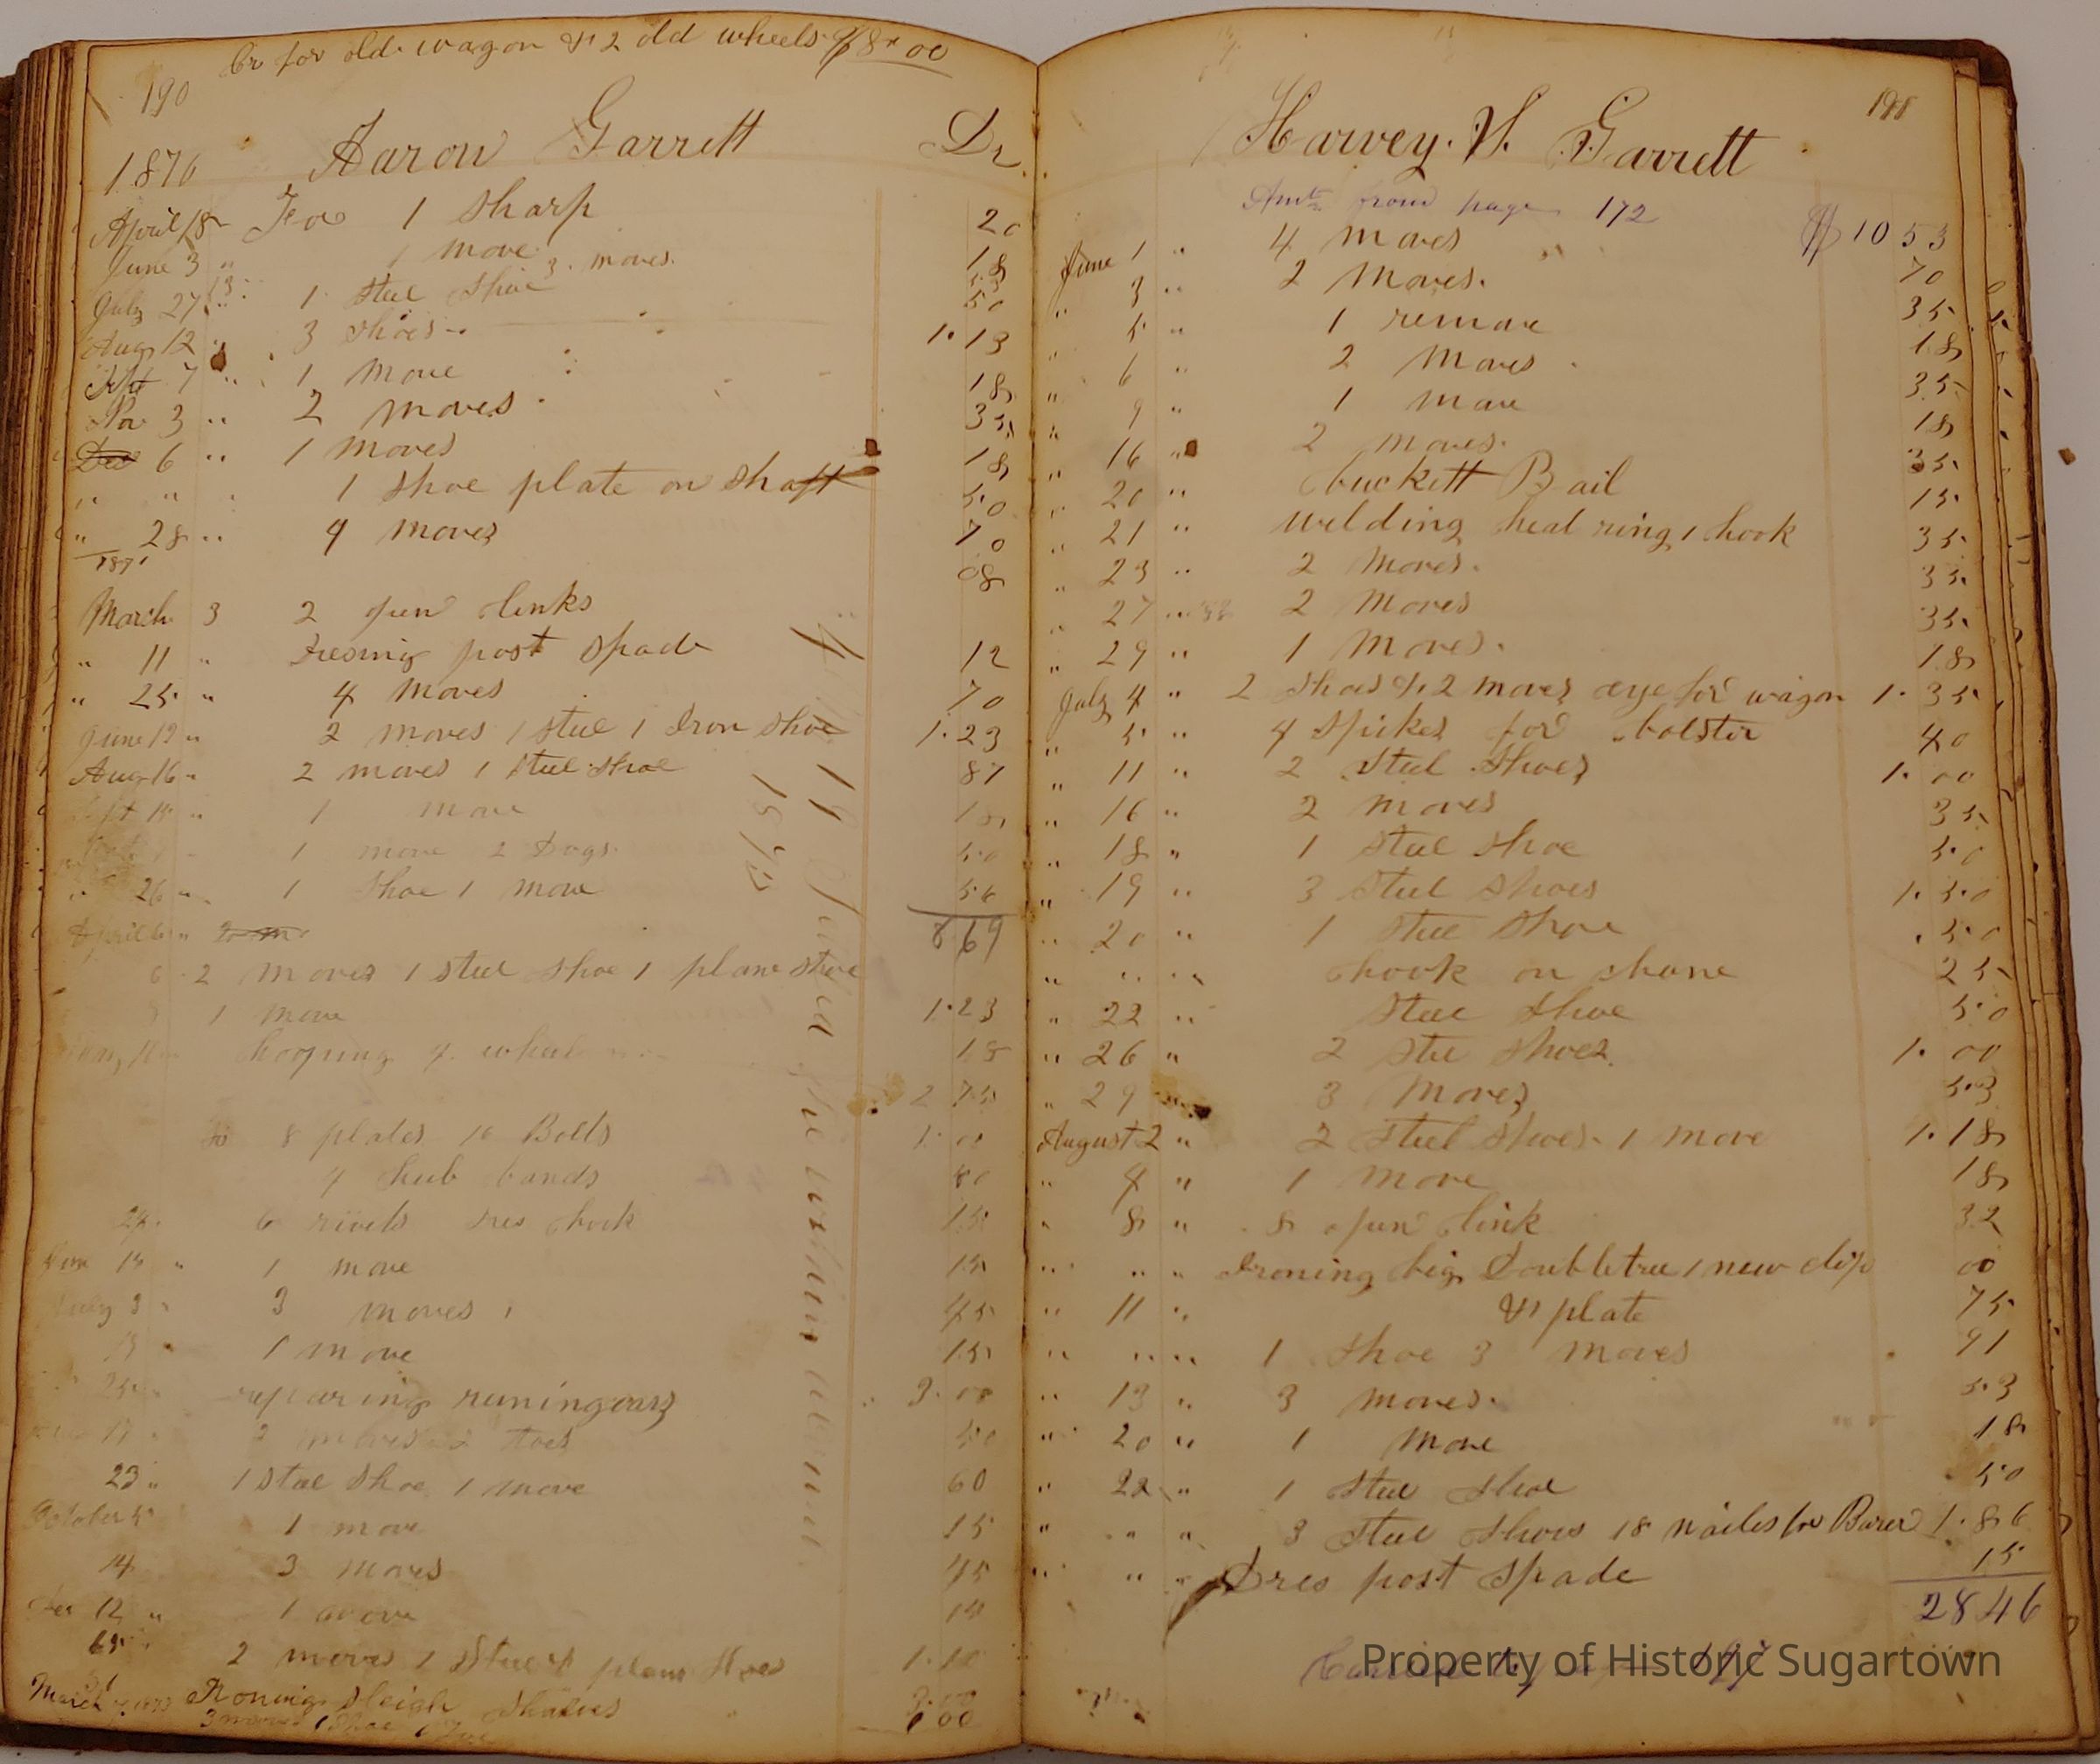 Cr for old wagon & 2 old wheels $8.00
190
1876 Aaron Garrett Dr
April 18 For 1 sharp 20
June 3 " 1 move 18
13 3 moves 53
July 27 " 1 steel shoe 50
Aug 12 " 3 shoes 1.13
Sept 7 " 1 move 18
Nov 3 " 2 moves 35
Dec 6 " 1 moves 18
" " 1 shoe plate on shaft 50
" 28 " 4 moves 70
187
08
March 3 2 open links
" 11 " Dresing post spade 12
" 25 " 4 moves 70
June 19 " 2 moves 1 steel 1 Iron shoe 1.23
Aug 16 " 2 moves 1 steel shoe 87
Sept 15 " 1 move 18
1 move 2 Dogs 50
" 26 " 1 shoe 1 move 56
869
April 6 "
6 2 moves 1 steel shoe 1 plane shoe
8 1 move 1.23
hooping 4 wheel 18
2 75
To 8 plates 16 Bolts 1.00
4 hub bands 80
24 6 rivets dres hook 15
June 15 " 1 move 15
July 3 " 3 moves 45
13 " 1 move 15
25 " repairing runingears 3.00
17 2 moves 2 toes 50
23 " 1 stee shoe 1 move 60
October 5 1 move 15
14 3 moves 45
Dec 12 " 1 move 15
2 moves 1 Steel & plane Shoes 1.10
March Ironing sleigh shalves 3.00
3 moves 1 shoe 1.00
Settled the within account
Harvey. S. Garrett
Amt from page 172 $10 53
June 1 " 4 moves 70
" 3 " 2 moves. 35
" 5 " 1 remove 18
" 6 " 2 moves 35
" 9 " 1 move 18
" 16 " 2 moves. 35
" 20 " buckett Bail 15
" 21 " welding heal ring 1 hook 35
" 23 " 2 moves. 35
" 27 " 2 moves 35
" 29 " 1 moves. 18
July 4 " 2 shoes & 2 moves eye for wagon 1.35
" 5 " 4 spikes for bolster 40
" 11 " 2 steel shoes 1.00
" 16 " 2 moves 35
" 18 " 1 steel shoe 50
" 19 " 3 steel shoes 1.50
" 20 " 1 steel shoe .50
" " " hook on chane 25
" 22 " steel shoe 50
" 26 " 2 stee shoes. 1.00
" 29 " 3 moves 53
August 2 " 2 steel shoes. 1 move 1.18
" 4 " 1 move 18
" 8 " 8 open link 32
" " " Ironing big Doubletree 1 new clip 00
" 11 " & 1 plate 75
" " " 1 shoe 3 moves 91
" 13 " 3 moves. 53
" 20 " 1 move 18
" 22 " 1 steel shoe 50
" " " 3 steel shoes 18 nailes for Burer 1.86
" " " Dres post spade 15
2846
Property of Historic Sugartown